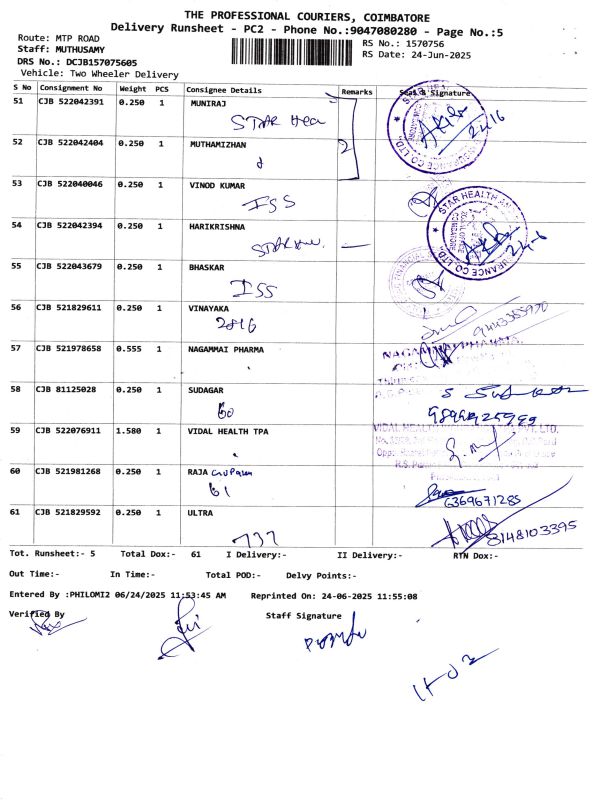 THE PROFESSIONAL COURIERS, COIMBATORE
Delivery Runsheet - PC2 - Phone No.:9047080280 - Page No.:5
Route: MTP ROAD
RS No.: 1570756
Staff: MUTHUSAMY
RS Date: 24-Jun-2025
DRS No.: DCJB157075605
Vehicle: Two Wheeler Delivery
S No Consignment No Weight PCS Consignee Details Remarks Seal & Signature
51 CJB 522042391 0.250 1 MUNIRAJ
STAR Hea
52 CJB 522042404 0.250 1 MUTHAMIZHAN
2
53 CJB 522040046 0.250 1 VINOD KUMAR
ISS
54 CJB 522042394 0.250 1 HARIKRISHNA
STAR
55 CJB 522043679 0.250 1 BHASKAR
ISS
56 CJB 521829611 0.250 1 VINAYAKA
2816
57 CJB 521978658 0.555 1 NAGAMMAI PHARMA
58 CJB 81125028 0.250 1 SUDAGAR
60
59 CJB 522076911 1.580 1 VIDAL HEALTH TPA
60 CJB 521981268 0.250 1 RAJA
61
6369671285
61 CJB 521829592 0.250 1 ULTRA
737
8148103395
Tot. Runsheet:- 5 Total Dox:- 61 I Delivery:- II Delivery:- RTN Dox:-
Out Time:- In Time:- Total POD:- Delvy Points:-
Entered By :PHILOMI2 06/24/2025 11:53:45 AM Reprinted On: 24-06-2025 11:55:08
Verified By Staff Signature